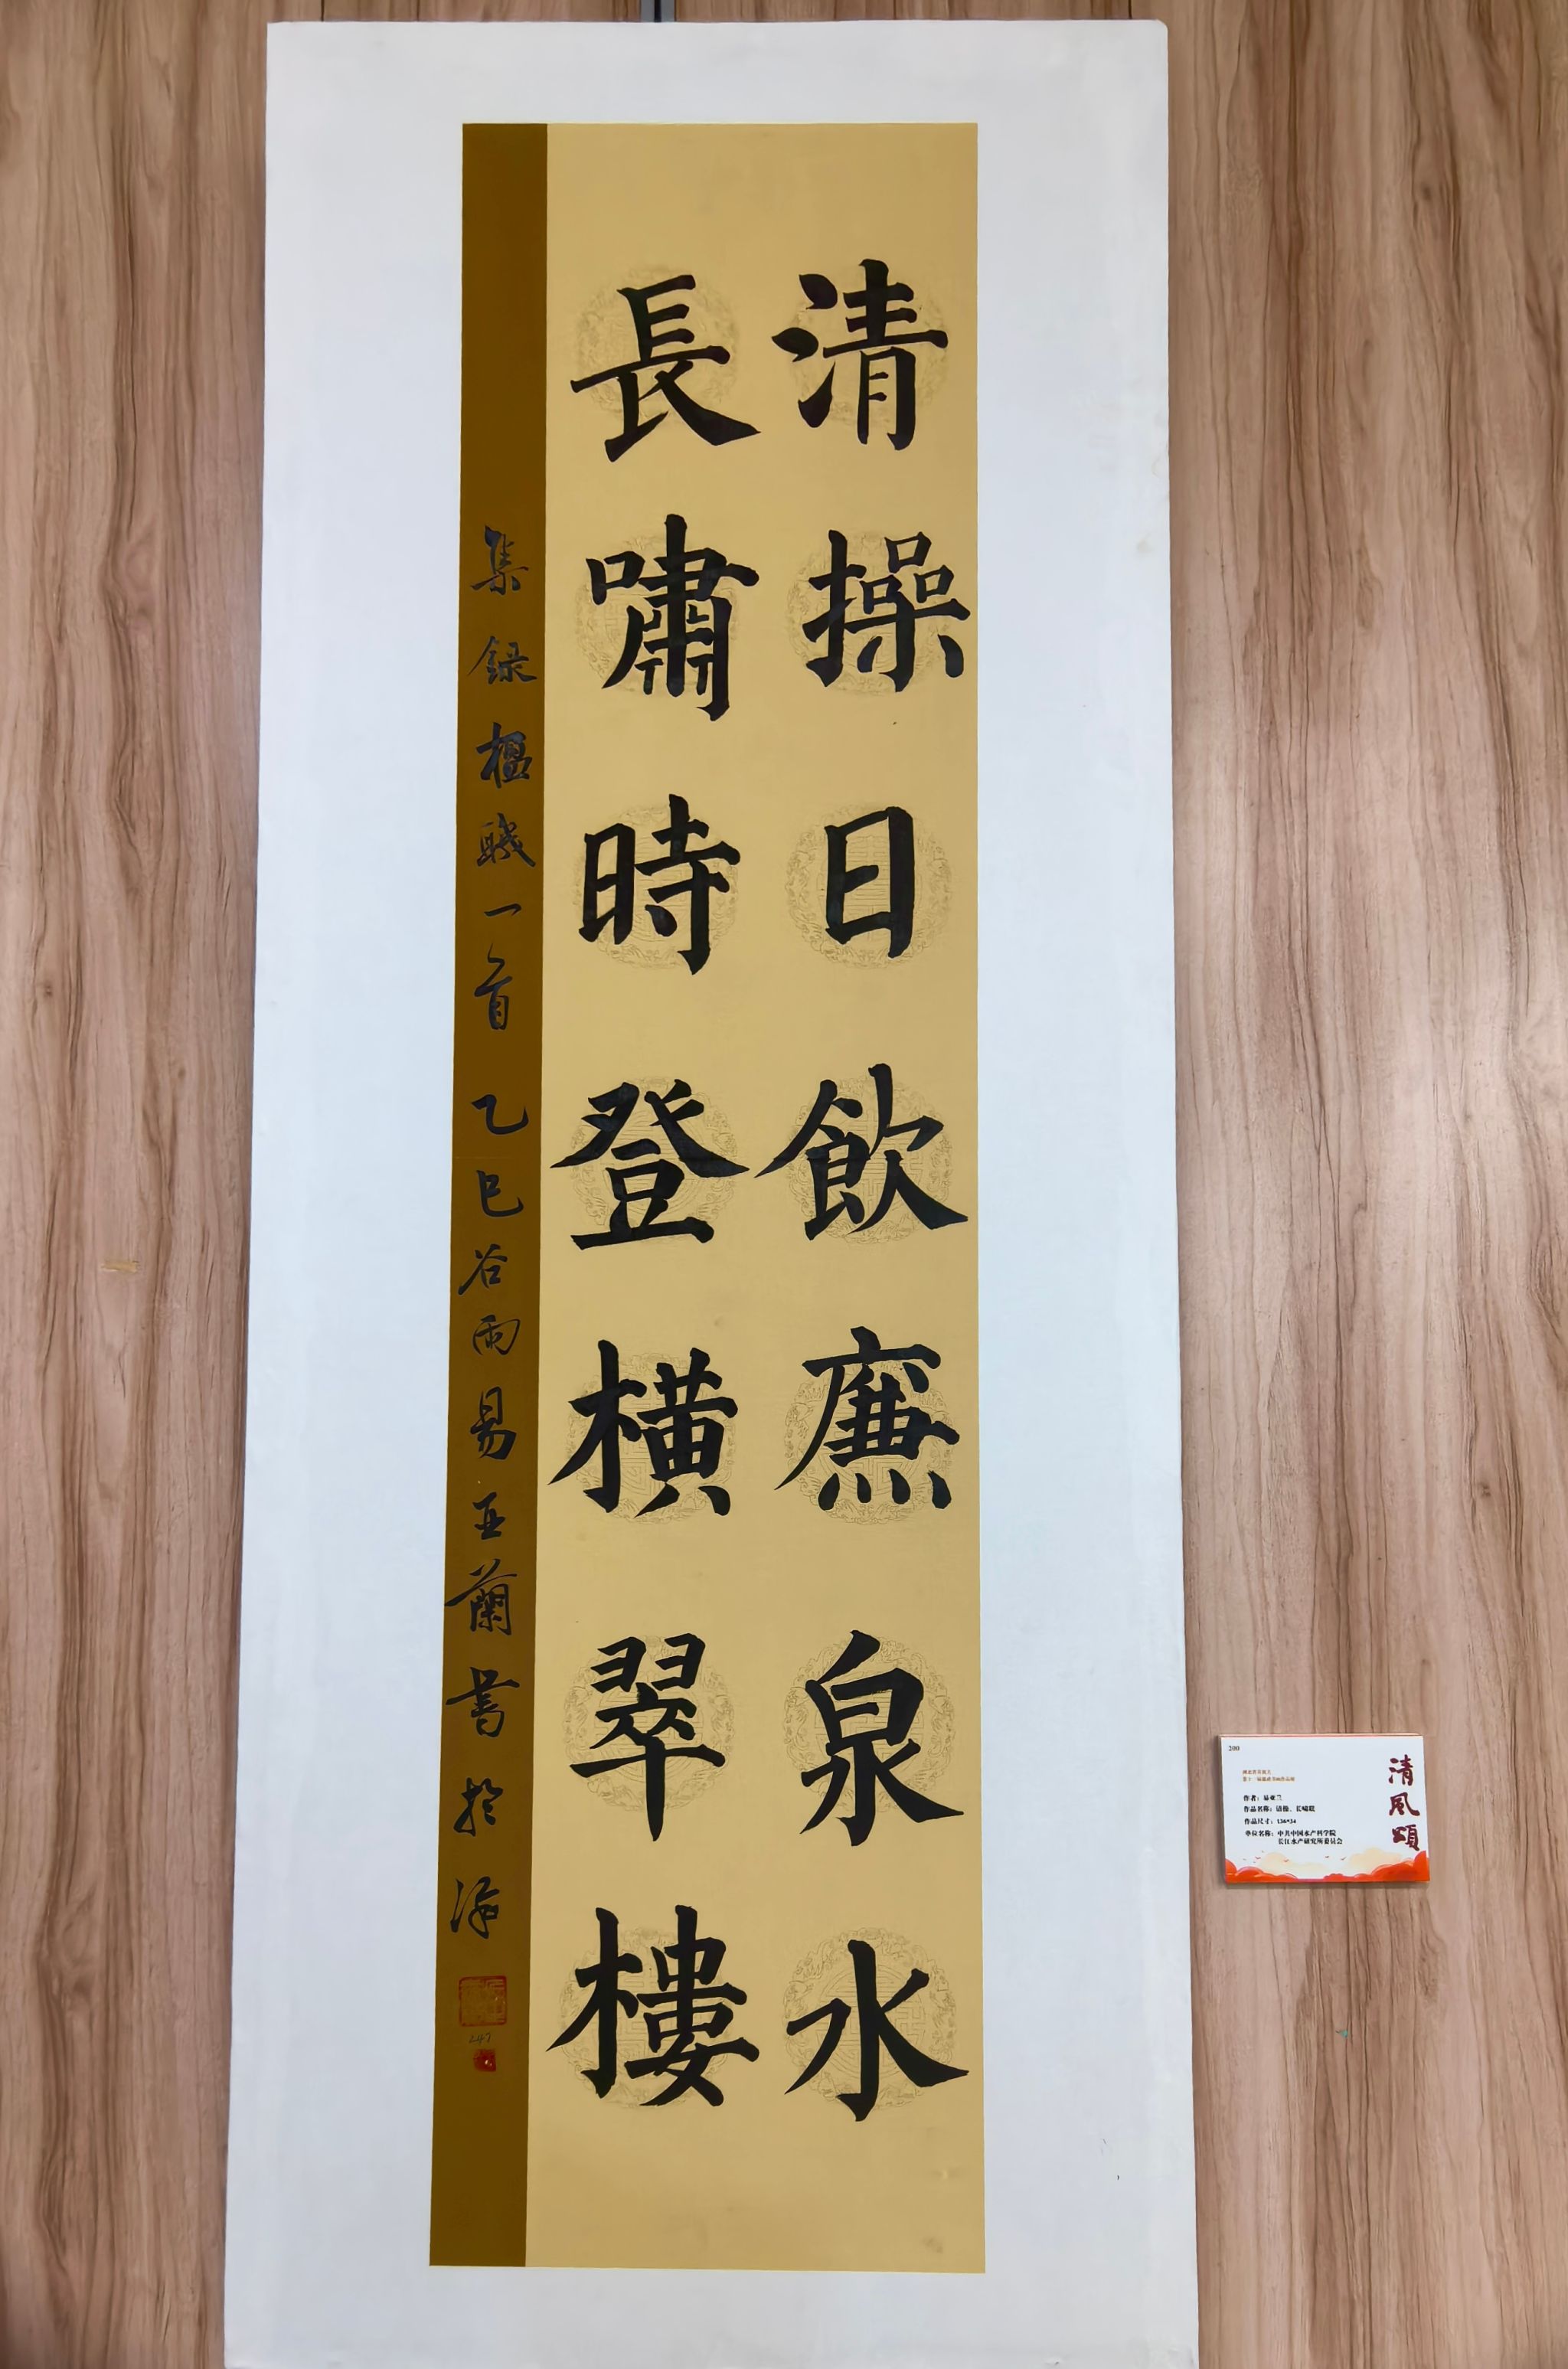 清操日飲廉泉水
長嘯時登橫翠樓
集録楹聯一首 乙巳谷雨易亞蘭書於
247
200
清風頌
作者：易亚兰
作品名称：清操、长啸联
作品尺寸：136*34
单位名称：中共中国水产科学院
长江水产研究所委员会